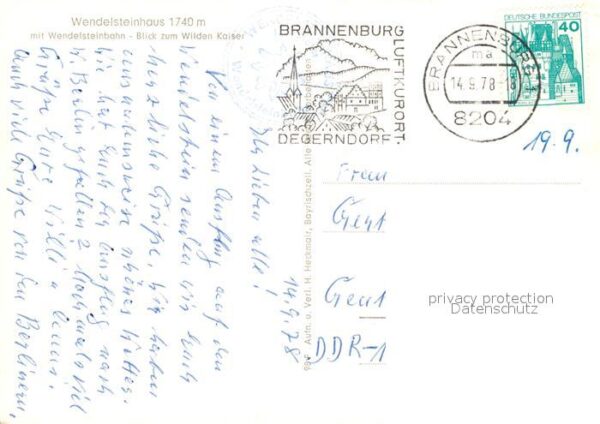 Wendelsteinhaus 1740 m
mit Wendelsteinbahn - Blick zum Wilden Kaiser
BRANNENBURG
LUFTKURORT
DEGERNDORF
BRANNENBURG
ma
14.9.78-18
8204
DEUTSCHE BUNDESPOST
40
19.9.
14.9.78
Ihr Lieben alle!
Von einem Ausflug auf den
Wendelstein senden wir Euch
herzliche Grüße, wir haben
ausnahmsweise schönes Wetter.
Wie hat Euch der Ausflug nach
W. Berlin gefallen? Nochmals viel
Grüße Eure Willi u.
auch viele Grüße von den Berlinern.
Aufn. u. Verl. H. Heckmair, Bayrischzell. Alle
Frau
Gent
Gent
DDR-1
privacy protection
Datenschutz